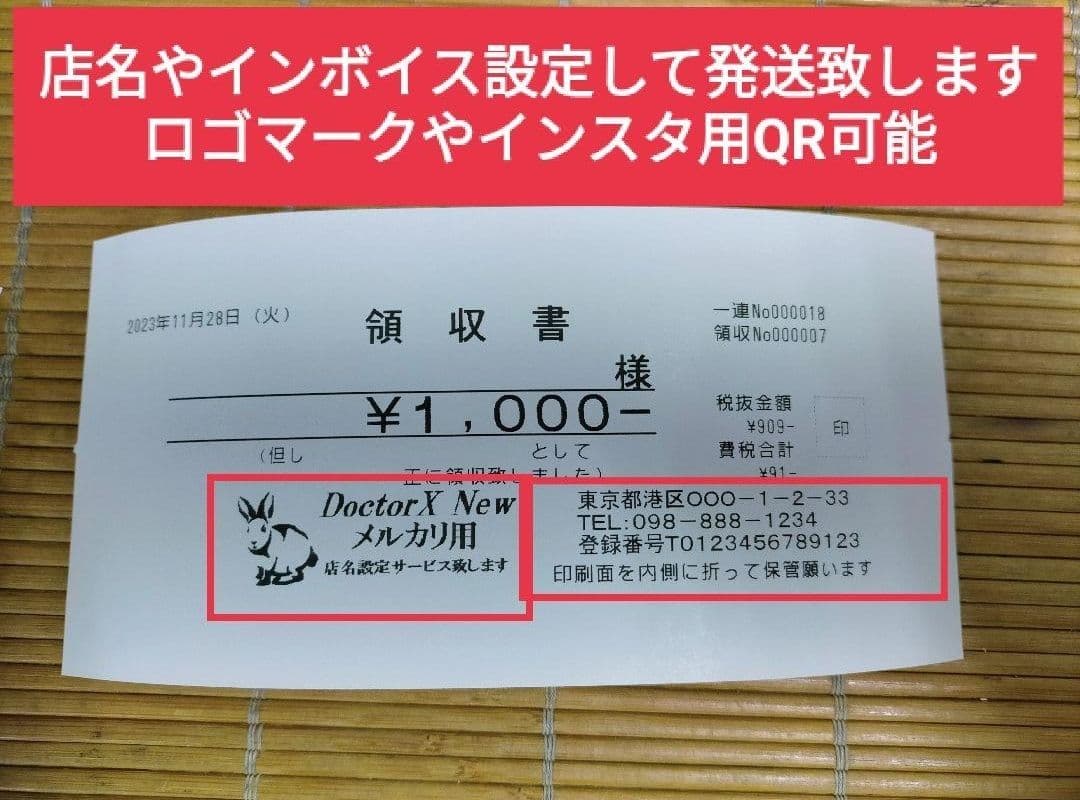 店名やインボイス設定して発送致します
ロゴマークやインスタ用QR可能
2023年11月28日（火）
領収書
一連No000018
領収No000007
様
¥1,000−
税抜金額
¥909-
費税合計
¥91-
印
（但し
として
正に領収致しました）
DoctorX New
メルカリ用
店名設定サービス致します
東京都港区OOO−1−2−33
TEL:098−888−1234
登録番号T0123456789123
印刷面を内側に折って保管願います